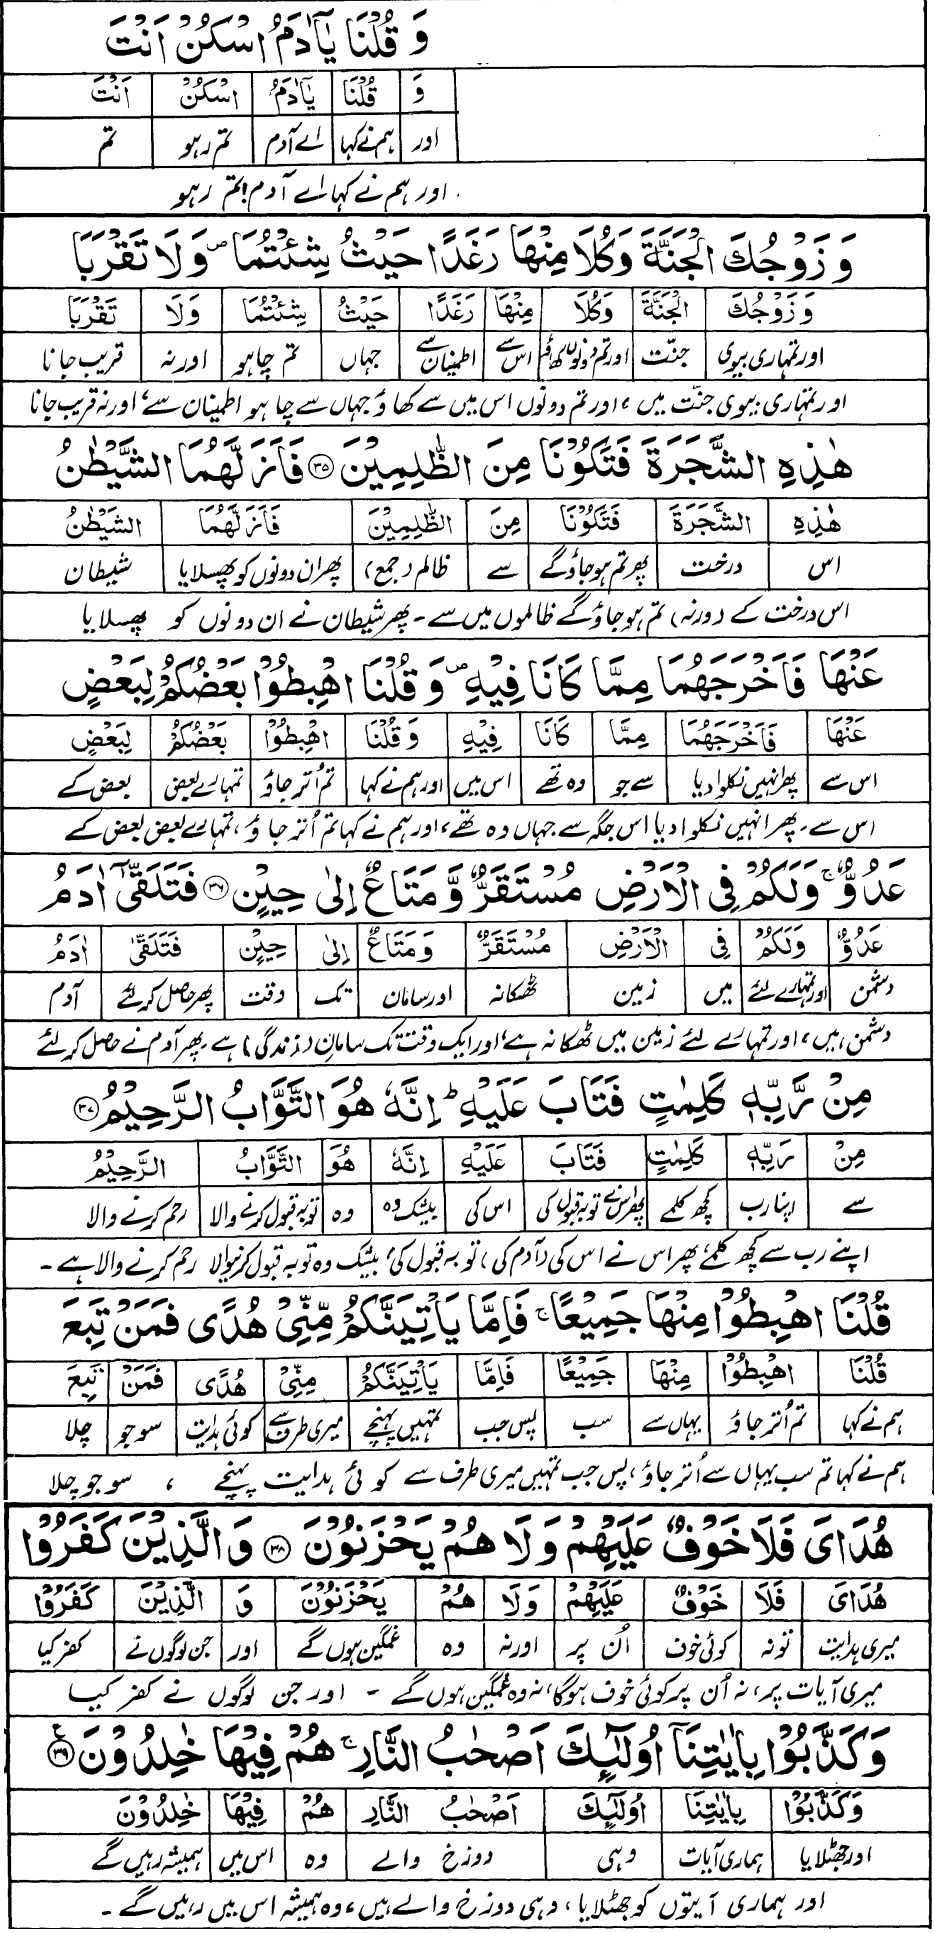 وَ قُلْنَا يٰۤاٰدَمُ اسْكُنْ اَنْتَ
وَ قُلْنَا يٰۤاٰدَمُ اسْكُنْ اَنْتَ
اور ہم نے کہا اے آدم تم رہو تم
اور ہم نے کہا اے آدم! تم رہو
وَ زَوْجُكَ الْجَنَّةَ وَكُلَا مِنْهَا رَغَدًا حَيْثُ شِئْتُمَا ۪ وَلَا تَقْرَبَا
وَ زَوْجُكَ الْجَنَّةَ وَكُلَا مِنْهَا رَغَدًا حَيْثُ شِئْتُمَا وَلَا تَقْرَبَا
اور تمہاری بیوی جنّت اور تم دونوں کھاؤ اس سے اطمینان سے جہاں تم چاہو اور نہ قریب جانا
اور تمہاری بیوی جنّت میں، اور تم دونوں اس میں سے کھاؤ جہاں سے چاہو اطمینان سے، اور نہ قریب جانا
هٰذِهِ الشَّجَرَةَ فَتَكُوْنَا مِنَ الظّٰلِمِيْنَ ۝۳۵ فَاَزَلَّهُمَا الشَّيْطٰنُ
هٰذِهِ الشَّجَرَةَ فَتَكُوْنَا مِنَ الظّٰلِمِيْنَ فَاَزَلَّهُمَا الشَّيْطٰنُ
اس درخت پھر تم ہو جاؤ گے سے ظالم (جمع) پھر ان دونوں کو پھسلایا شیطان
اس درخت کے (ورنہ) تم ہو جاؤ گے ظالموں میں سے - پھر شیطان نے ان دونوں کو پھسلایا
عَنْهَا فَاَخْرَجَهُمَا مِمَّا كَانَا فِيْهِ ۪ وَ قُلْنَا اهْبِطُوْا بَعْضُكُمْ لِبَعْضٍ
عَنْهَا فَاَخْرَجَهُمَا مِمَّا كَانَا فِيْهِ وَ قُلْنَا اهْبِطُوْا بَعْضُكُمْ لِبَعْضٍ
اس سے پھر انہیں نکلوا دیا سے جو وہ تھے اس میں اور ہم نے کہا تم اُتر جاؤ تمہارے بعض بعض کے
اس سے۔ پھر انہیں نکلوا دیا اس جگہ سے جہاں وہ تھے، اور ہم نے کہا تم اُتر جاؤ، تمہارے بعض بعض کے
عَدُوٌّ ۚ وَلَكُمْ فِى الْاَرْضِ مُسْتَقَرٌّ وَّ مَتَاعٌ اِلٰى حِيْنٍ ۝۳۶ فَتَلَقّٰۤى اٰدَمُ
عَدُوٌّ وَلَكُمْ فِى الْاَرْضِ مُسْتَقَرٌّ وَ مَتَاعٌ اِلٰى حِيْنٍ فَتَلَقّٰى اٰدَمُ
دشمن اور تمہارے لئے میں زمین ٹھکانہ اور سامان تک وقت پھر حاصل کر لئے آدم
دشمن ہیں، اور تمہارے لئے زمین میں ٹھکانہ ہے، اور ایک وقت تک سامانِ (زندگی) ہے پھر آدم نے حاصل کر لئے
مِنْ رَّبِّهٖ كَلِمٰتٍ فَتَابَ عَلَيْهِ ؕ اِنَّهٗ هُوَ التَّوَّابُ الرَّحِيْمُ ۝۳۷
مِنْ رَبِّهٖ كَلِمٰتٍ فَتَابَ عَلَيْهِ اِنَّهٗ هُوَ التَّوَّابُ الرَّحِيْمُ
سے اپنا رب کچھ کلمے پھر اس نے توبہ قبول کی اس کی بیشک وہ وہ توبہ قبول کرنے والا رحم کرنے والا
اپنے رب سے کچھ کلمے، پھر اس نے اس کی (آدم کی) توبہ قبول کی، بیشک وہ توبہ قبول کرنیوالا رحم کرنے والا ہے -
قُلْنَا اهْبِطُوْا مِنْهَا جَمِيْعًا ۚ فَاِمَّا يَاْتِيَنَّكُمْ مِّنِّىْ هُدًى فَمَنْ تَبِعَ
قُلْنَا اهْبِطُوْا مِنْهَا جَمِيْعًا فَاِمَّا يَاْتِيَنَّكُمْ مِنِّىْ هُدًى فَمَنْ تَبِعَ
ہم نے کہا تم اُتر جاؤ یہاں سے سب پس جب تمہیں پہنچے میری طرف سے کوئی ہدایت سو جو چلا
ہم نے کہا تم سب یہاں سے اُتر جاؤ، پس جب تمہیں میری طرف سے کوئی ہدایت پہنچے ، سو جو چلا
هُدَاىَ فَلَا خَوْفٌ عَلَيْهِمْ وَلَا هُمْ يَحْزَنُوْنَ ۝۳۸ وَ الَّذِيْنَ كَفَرُوْا
هُدَاىَ فَلَا خَوْفٌ عَلَيْهِمْ وَلَا هُمْ يَحْزَنُوْنَ وَ الَّذِيْنَ كَفَرُوْا
میری ہدایت تو نہ کوئی خوف اُن پر اور نہ وہ غمگین ہوں گے اور جن لوگوں نے کفر کیا
میری آیات پر، نہ اُن پر کوئی خوف ہوگا، نہ وہ غمگین ہوں گے - اور جن لوگوں نے کفر کیا
وَ كَذَّبُوْا بِاٰيٰتِنَاۤ اُولٰٓئِكَ اَصْحٰبُ النَّارِ ۚ هُمْ فِيْهَا خٰلِدُوْنَ ۝۳۹ ع
وَ كَذَّبُوْا بِاٰيٰتِنَا اُولٰٓئِكَ اَصْحٰبُ النَّارِ هُمْ فِيْهَا خٰلِدُوْنَ
اور جھٹلایا ہماری آیات وہی دوزخ والے وہ اس میں ہمیشہ رہیں گے
اور ہماری آیتوں کو جھٹلایا، وہی دوزخ والے ہیں، وہ ہمیشہ اس میں رہیں گے -